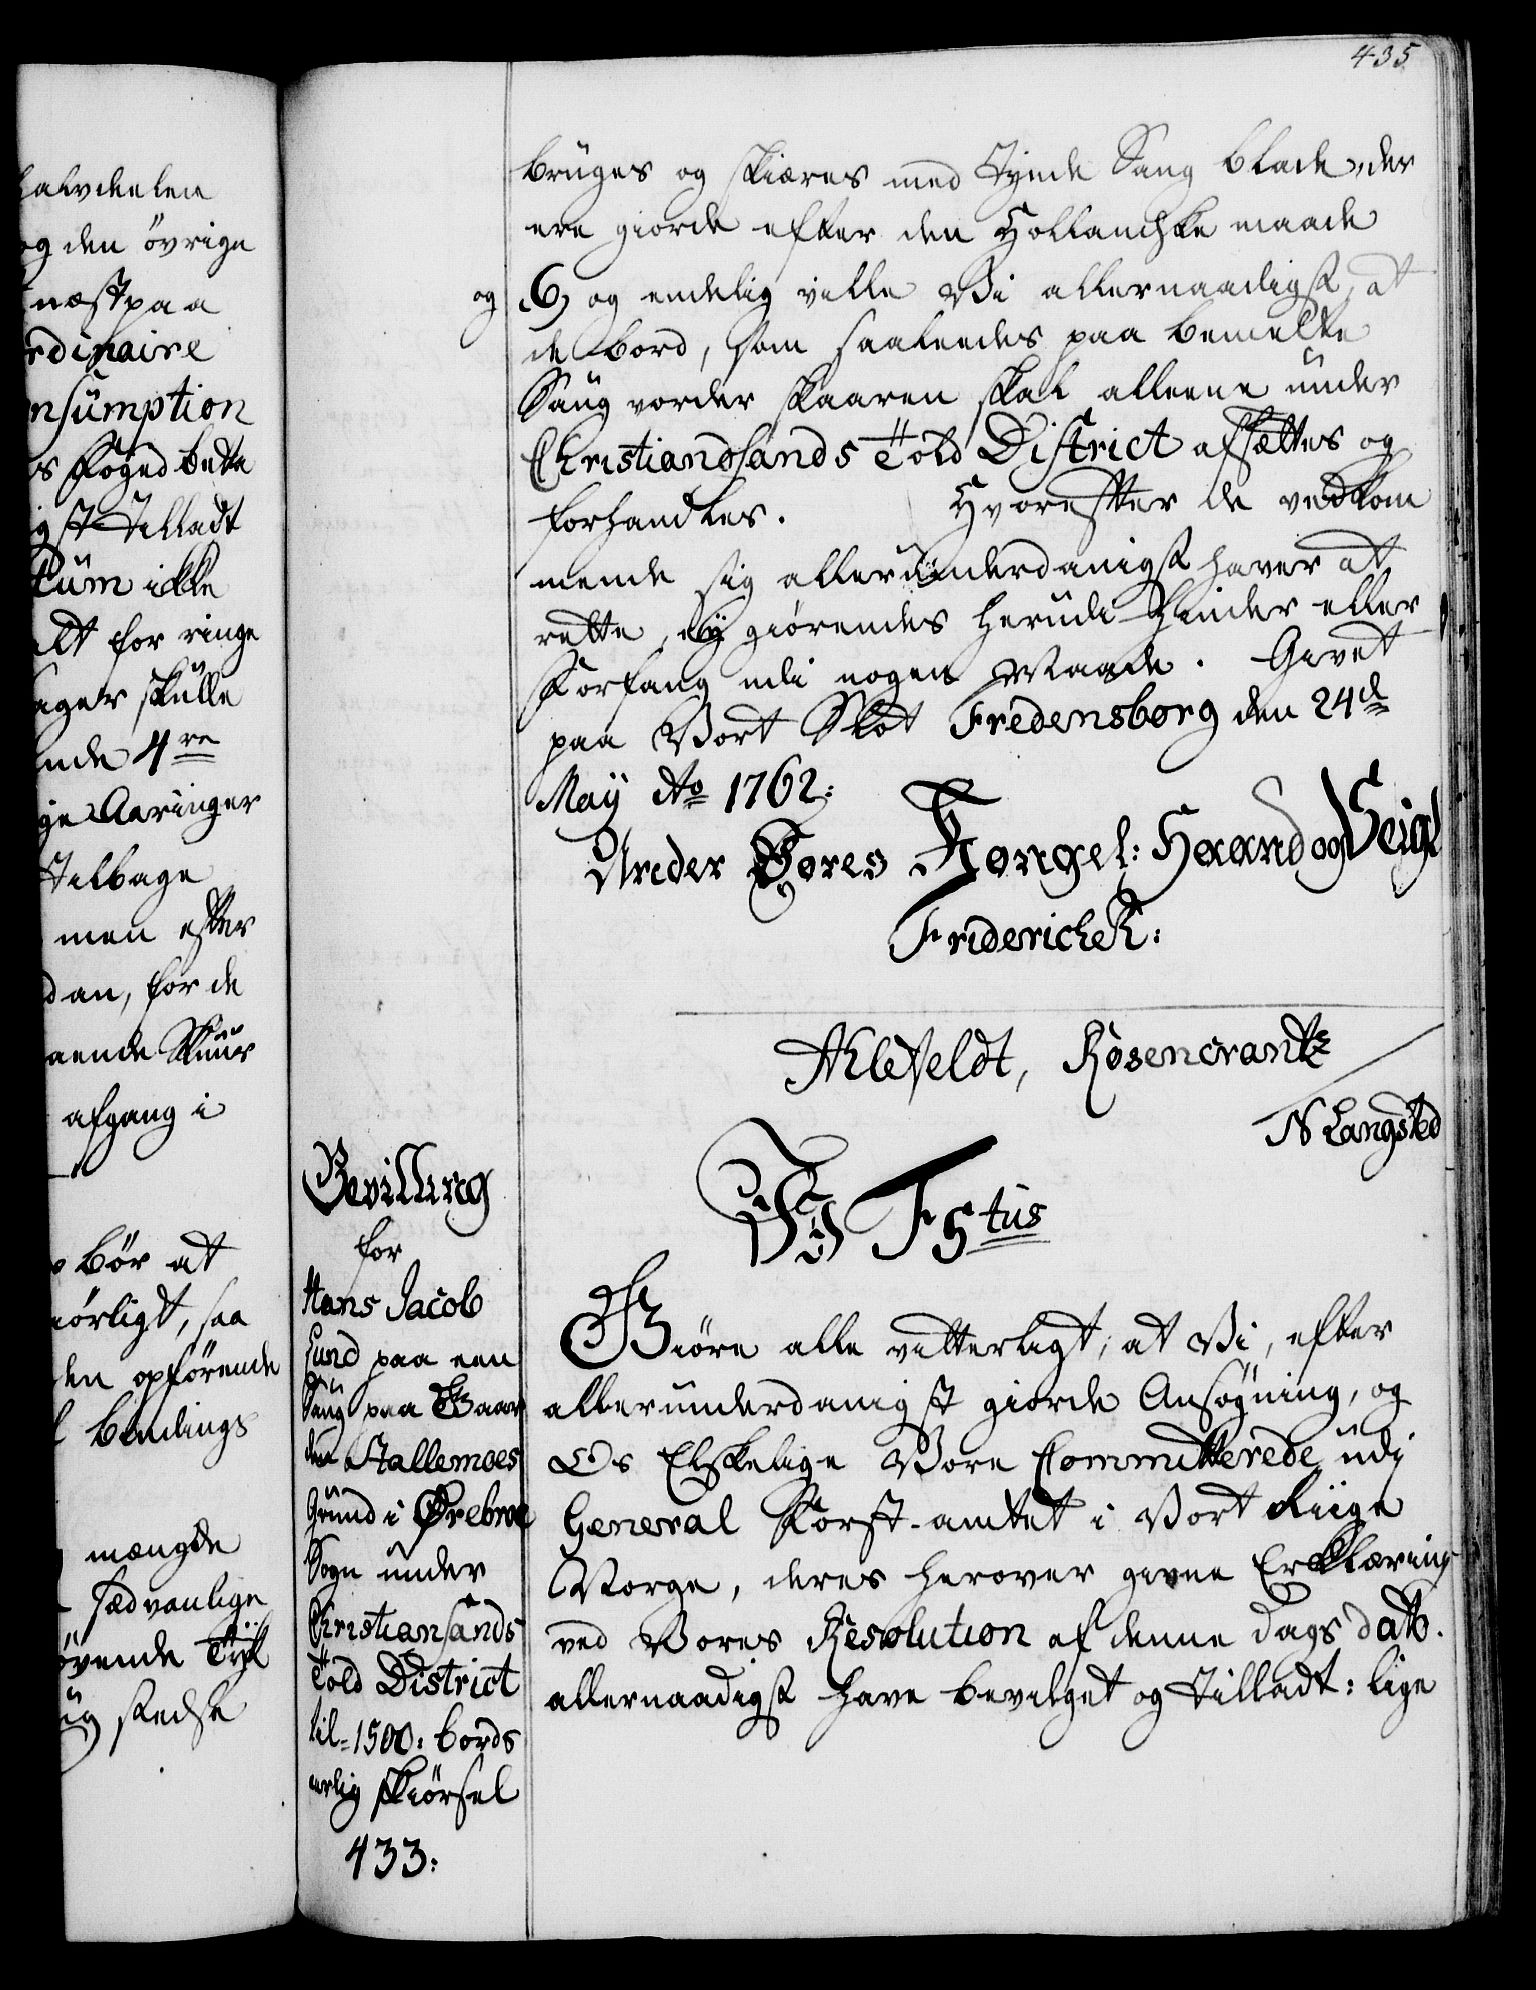 halvdeelen
og den övrige
næst paa
rdinaire
nsumption
s Foged bette
igst Tilladt
tum ikke
alt for ringe
ager skulle
nde 4re
ige Aaringer
Tilbage
men efter
dan, for de
aaende Skuur
afgang i
bör at
iörligt, saa
den opförende
l bindings
mængde
sædvanlige
övende Tyk
ug skedse
435
bruges og skiæres med Tynde Saug blade, der
ere giorde efter den Hollandske maade
og 6, og endelig ville Vi allernaadigst, at
de bord, som saaleedes paa bemelte
Saug vorder skaaren skal alleene under
Christiandsands Told District afsættes og
forhandles. Hvorefter de vedkom
mende sig allerunderdanigst haver at
rette, ey giörendes herudi Hinder eller
Forfang udi nogen Maade. Givet
paa Vort Slot Fredensborg den 24de
Maÿ Ao 1762:
Under Vores Kongel: Haand og Seigl
Friderich R:
Ahlefeldt, Rosencrantz
N Langsted
Bevilling
for
Hans Jacob
Lund paa een
Saug paa Gaar
den Stallemoes
Grund i Ørebroe
Sogn under
Christiansands
Told District
til 1500: bords
aarlig skiörsel
433:
Vi F 5tus
Giöre alle vitterligt, at Vi, efter
allerunderdanigst giorde Ansøgning, og
Os Elskelige Vore Committerede udj
General Forst-amtet i Vort Riige
Norge, deres herover givne Erklæring
ved Vores Resolution af denne Dags dato.
allernaadigst have bevilget og Tilladt: lige